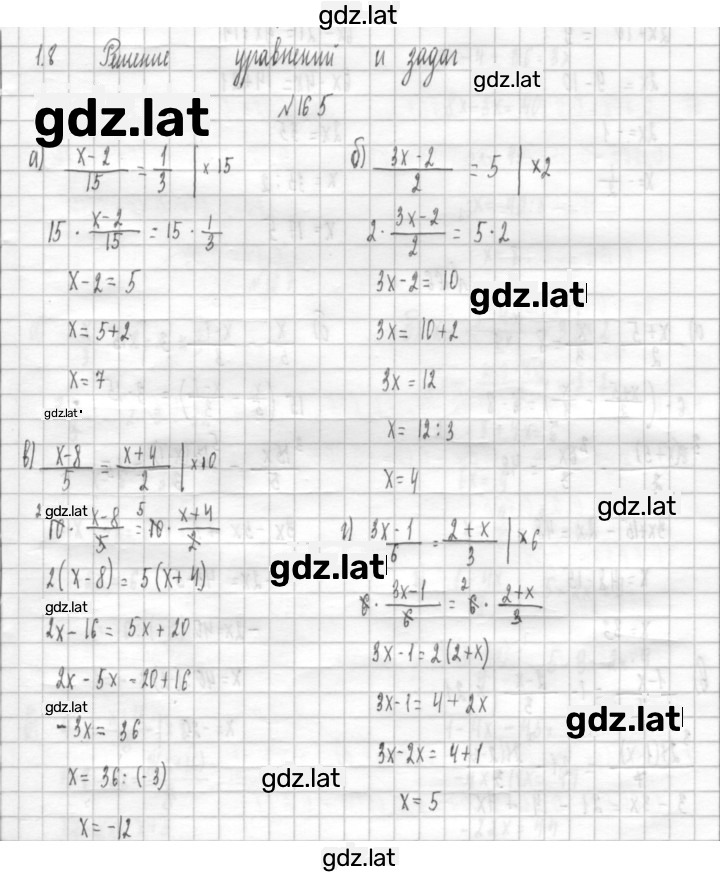 gdz.lat
1.8 Решение уравнений и задач
gdz.lat
gdz.lat
№ 165
а) (x-2)/15 = 1/3 | ×15
15 · (x-2)/15 = 15 · 1/3
x-2 = 5
x = 5+2
x = 7
gdz.lat
б) (3x-2)/2 = 5 | ×2
2 · (3x-2)/2 = 5·2
3x-2 = 10
gdz.lat
3x = 10+2
3x = 12
x = 12:3
x = 4
gdz.lat
в) (x-8)/5 = (x+4)/2 | ×10
2 10 · (x-8)/5 = 5 10 · (x+4)/2
gdz.lat
2(x-8) = 5(x+4)
gdz.lat
gdz.lat
2x-16 = 5x+20
2x-5x = 20+16
gdz.lat
-3x = 36
x = 36:(-3)
x = -12
г) (3x-1)/6 = (2+x)/3 | ×6
6 · (3x-1)/6 = 2 6 · (2+x)/3
3x-1 = 2(2+x)
3x-1 = 4+2x
gdz.lat
3x-2x = 4+1
gdz.lat
x = 5
gdz.lat